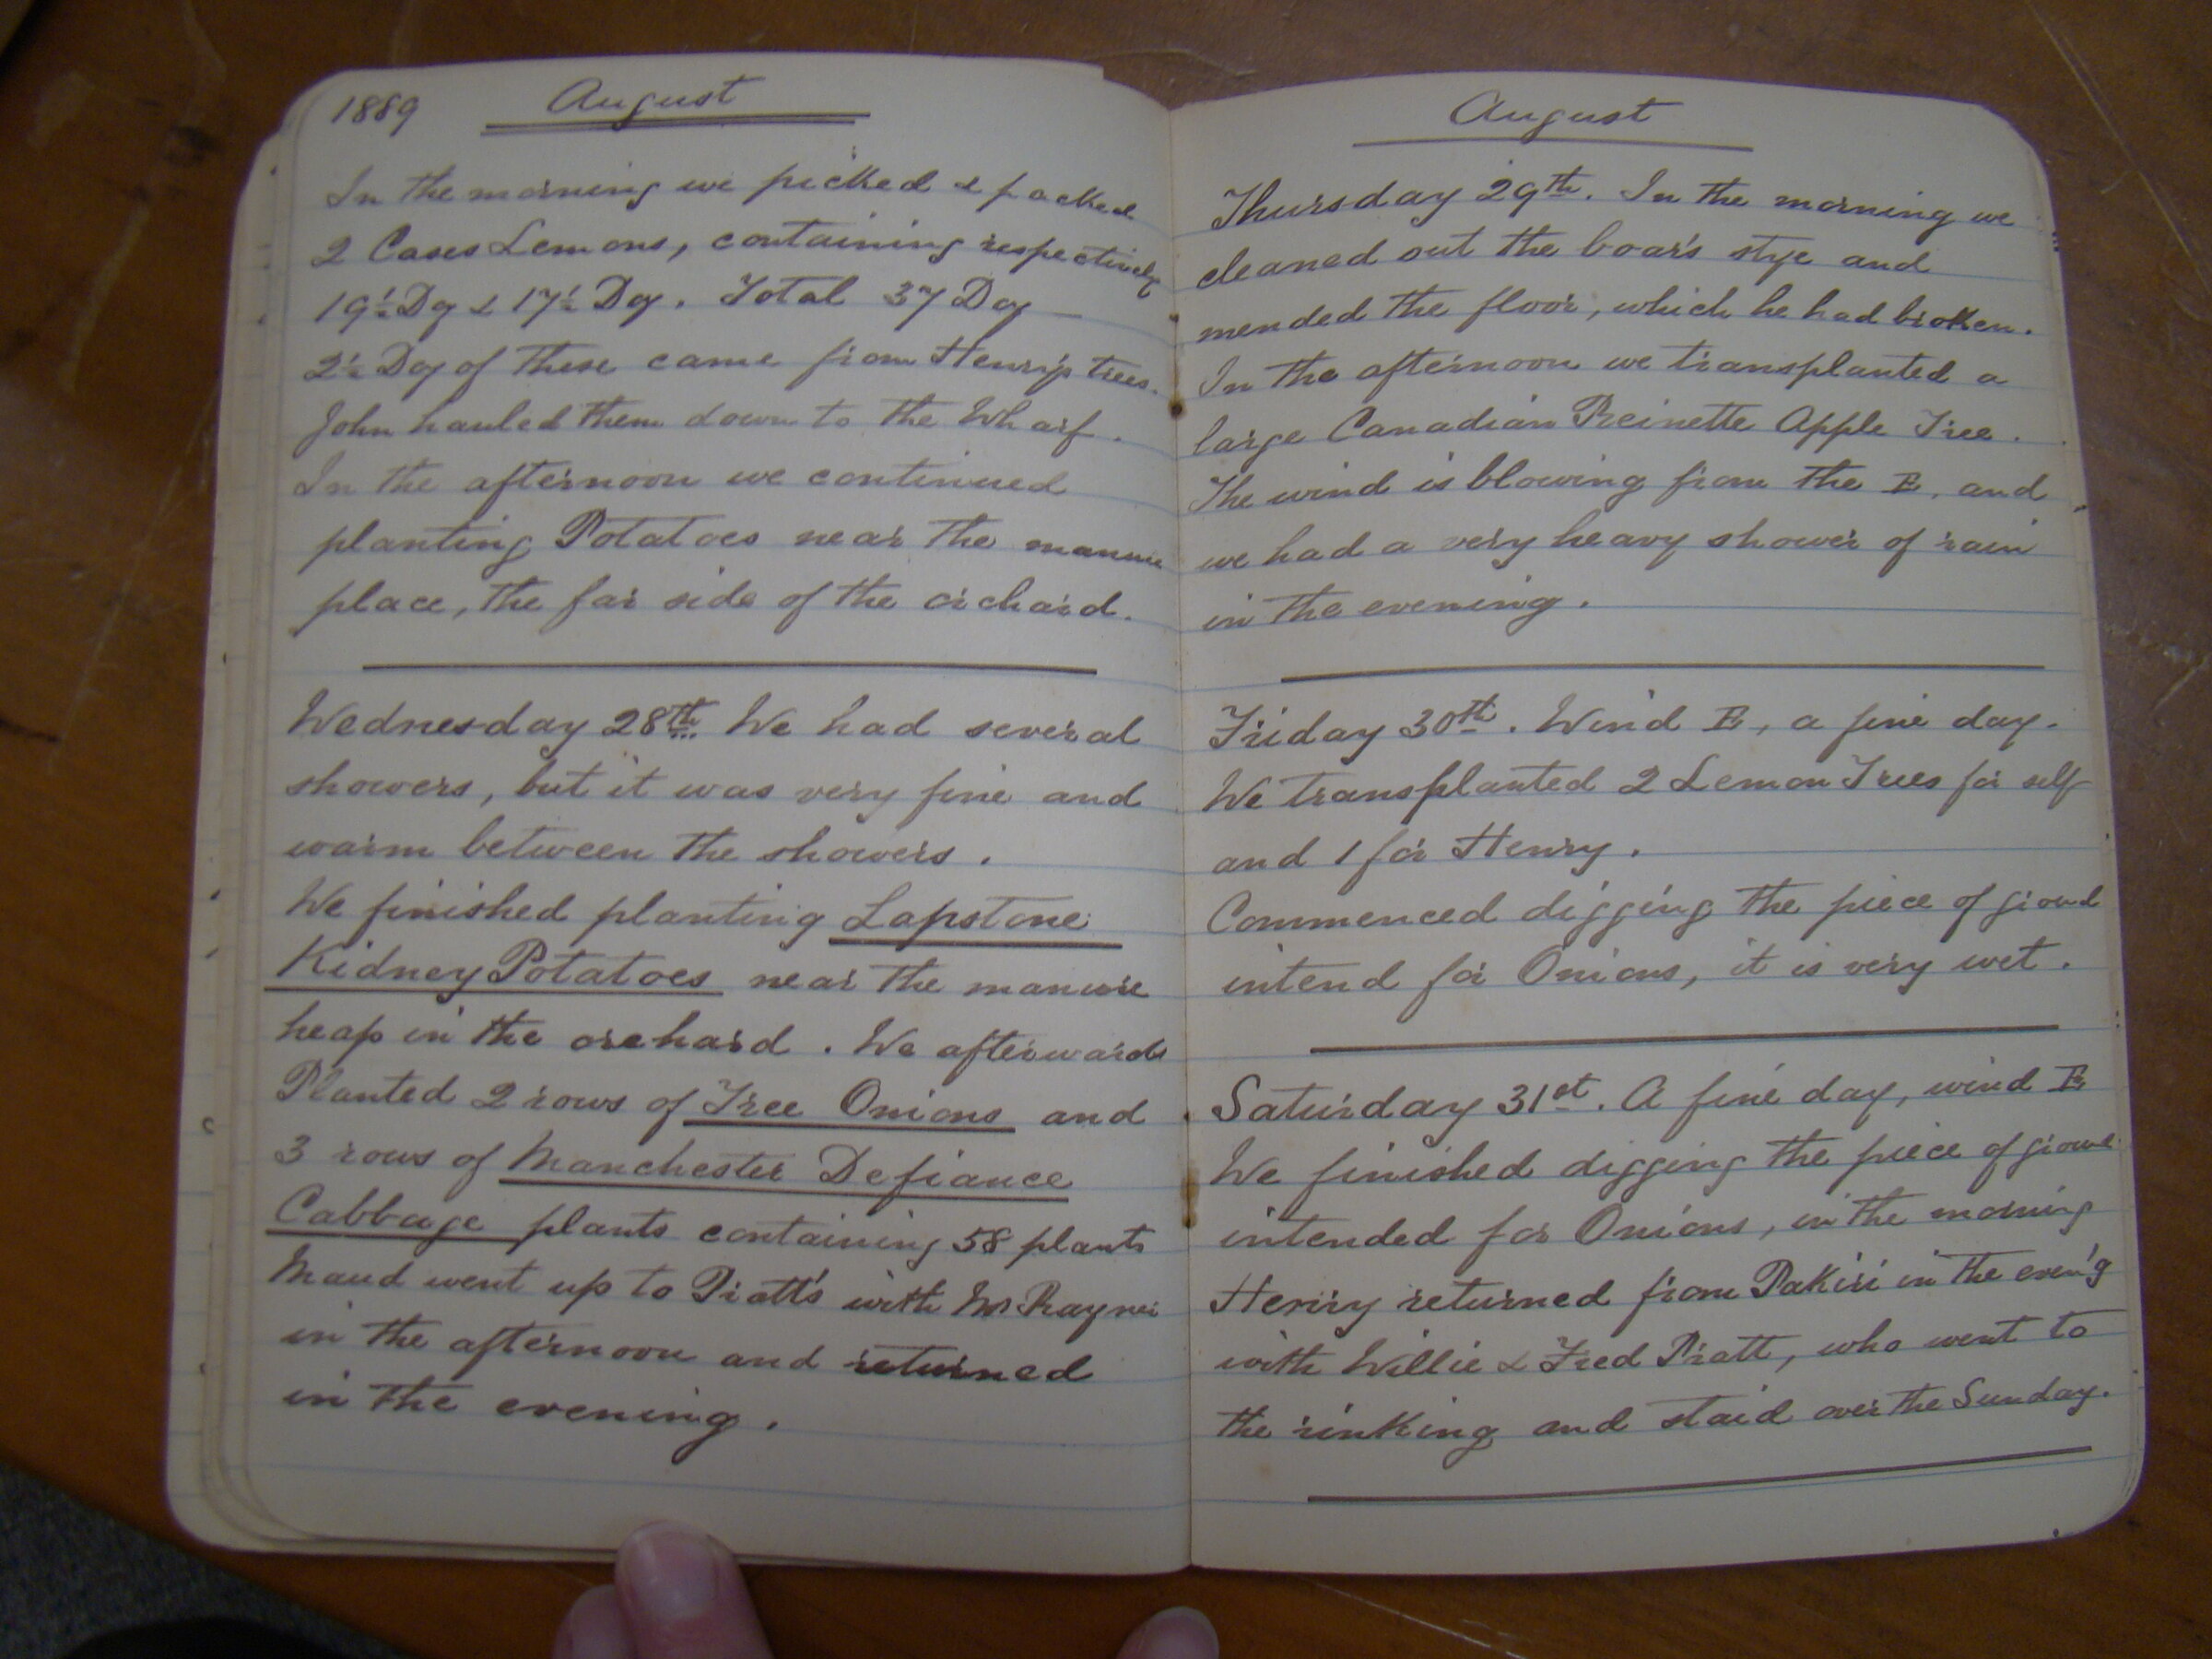 1889 August
In the morning we picked & packed
2 Cases Lemons, containing respectively
19½ Dz & 17½ Dz. Total 37 Dz
2½ Dz of these came from Henry's trees.
John hauled them down to the Wharf.
In the afternoon we continued
planting Potatoes near the manure
place, the far side of the orchard.
Wednesday 28th. We had several
showers, but it was very fine and
warm between the showers.
We finished planting Lapstone
Kidney Potatoes near the manure
heap in the orchard. We afterwards
Planted 2 rows of Tree Onions and
3 rows of Manchester Defiance
Cabbage plants containing 58 plants
Maud went up to Pratt's with Mr Rayner
in the afternoon and returned
in the evening.
August
Thursday 29th. In the morning we
cleaned out the boar's stye and
mended the floor, which he had broken.
In the afternoon we transplanted a
large Canadian Reinette Apple Tree.
The wind is blowing from the E, and
we had a very heavy shower of rain
in the evening.
Friday 30th. Wind E, a fine day.
We transplanted 2 Lemon Trees for self
and 1 for Henry.
Commenced digging the piece of ground
intend for Onions, it is very wet.
Saturday 31st. A fine day, wind E
We finished digging the piece of ground
intended for Onions, in the morning
Henry returned from Pakiri in the even'g
with Willie & Fred Pratt, who went to
the rinking and staid over the Sunday.